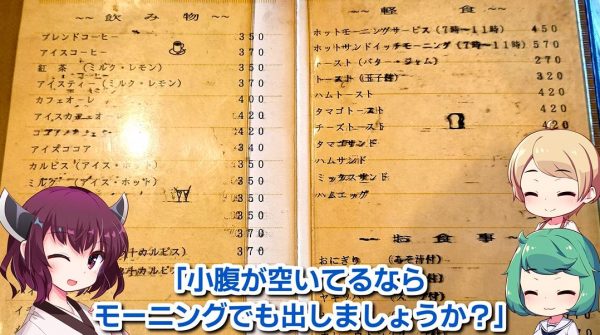 ~~ 飲み物 ~~
ブレンドコーヒー 350
アイスコーヒー 370
紅茶（ミルク・レモン） 350
アイスティー（ミルク・レモン） 370
カフェオーレ 400
アイスカフェオ 420
ココア 420
アイスココア 340
カルピス（アイス・ホット） 350
ミルク（アイス・ホット） 350
350
350
370
~~ 軽食 ~~
ホットモーニングサービス（7時～11時） 450
ホットサンドイッチモーニング（7時～11時） 570
トースト（バター・ジャム） 270
トースト（玉子付） 320
ハムトースト 420
タマゴトースト 420
チーズトースト 420
タマゴサンド
ハムサンド
ミックスサンド
ハムエッグ
~~ お食事 ~~
おにぎり（みそ汁付）
「小腹が空いてるなら
モーニングでも出しましょうか？」